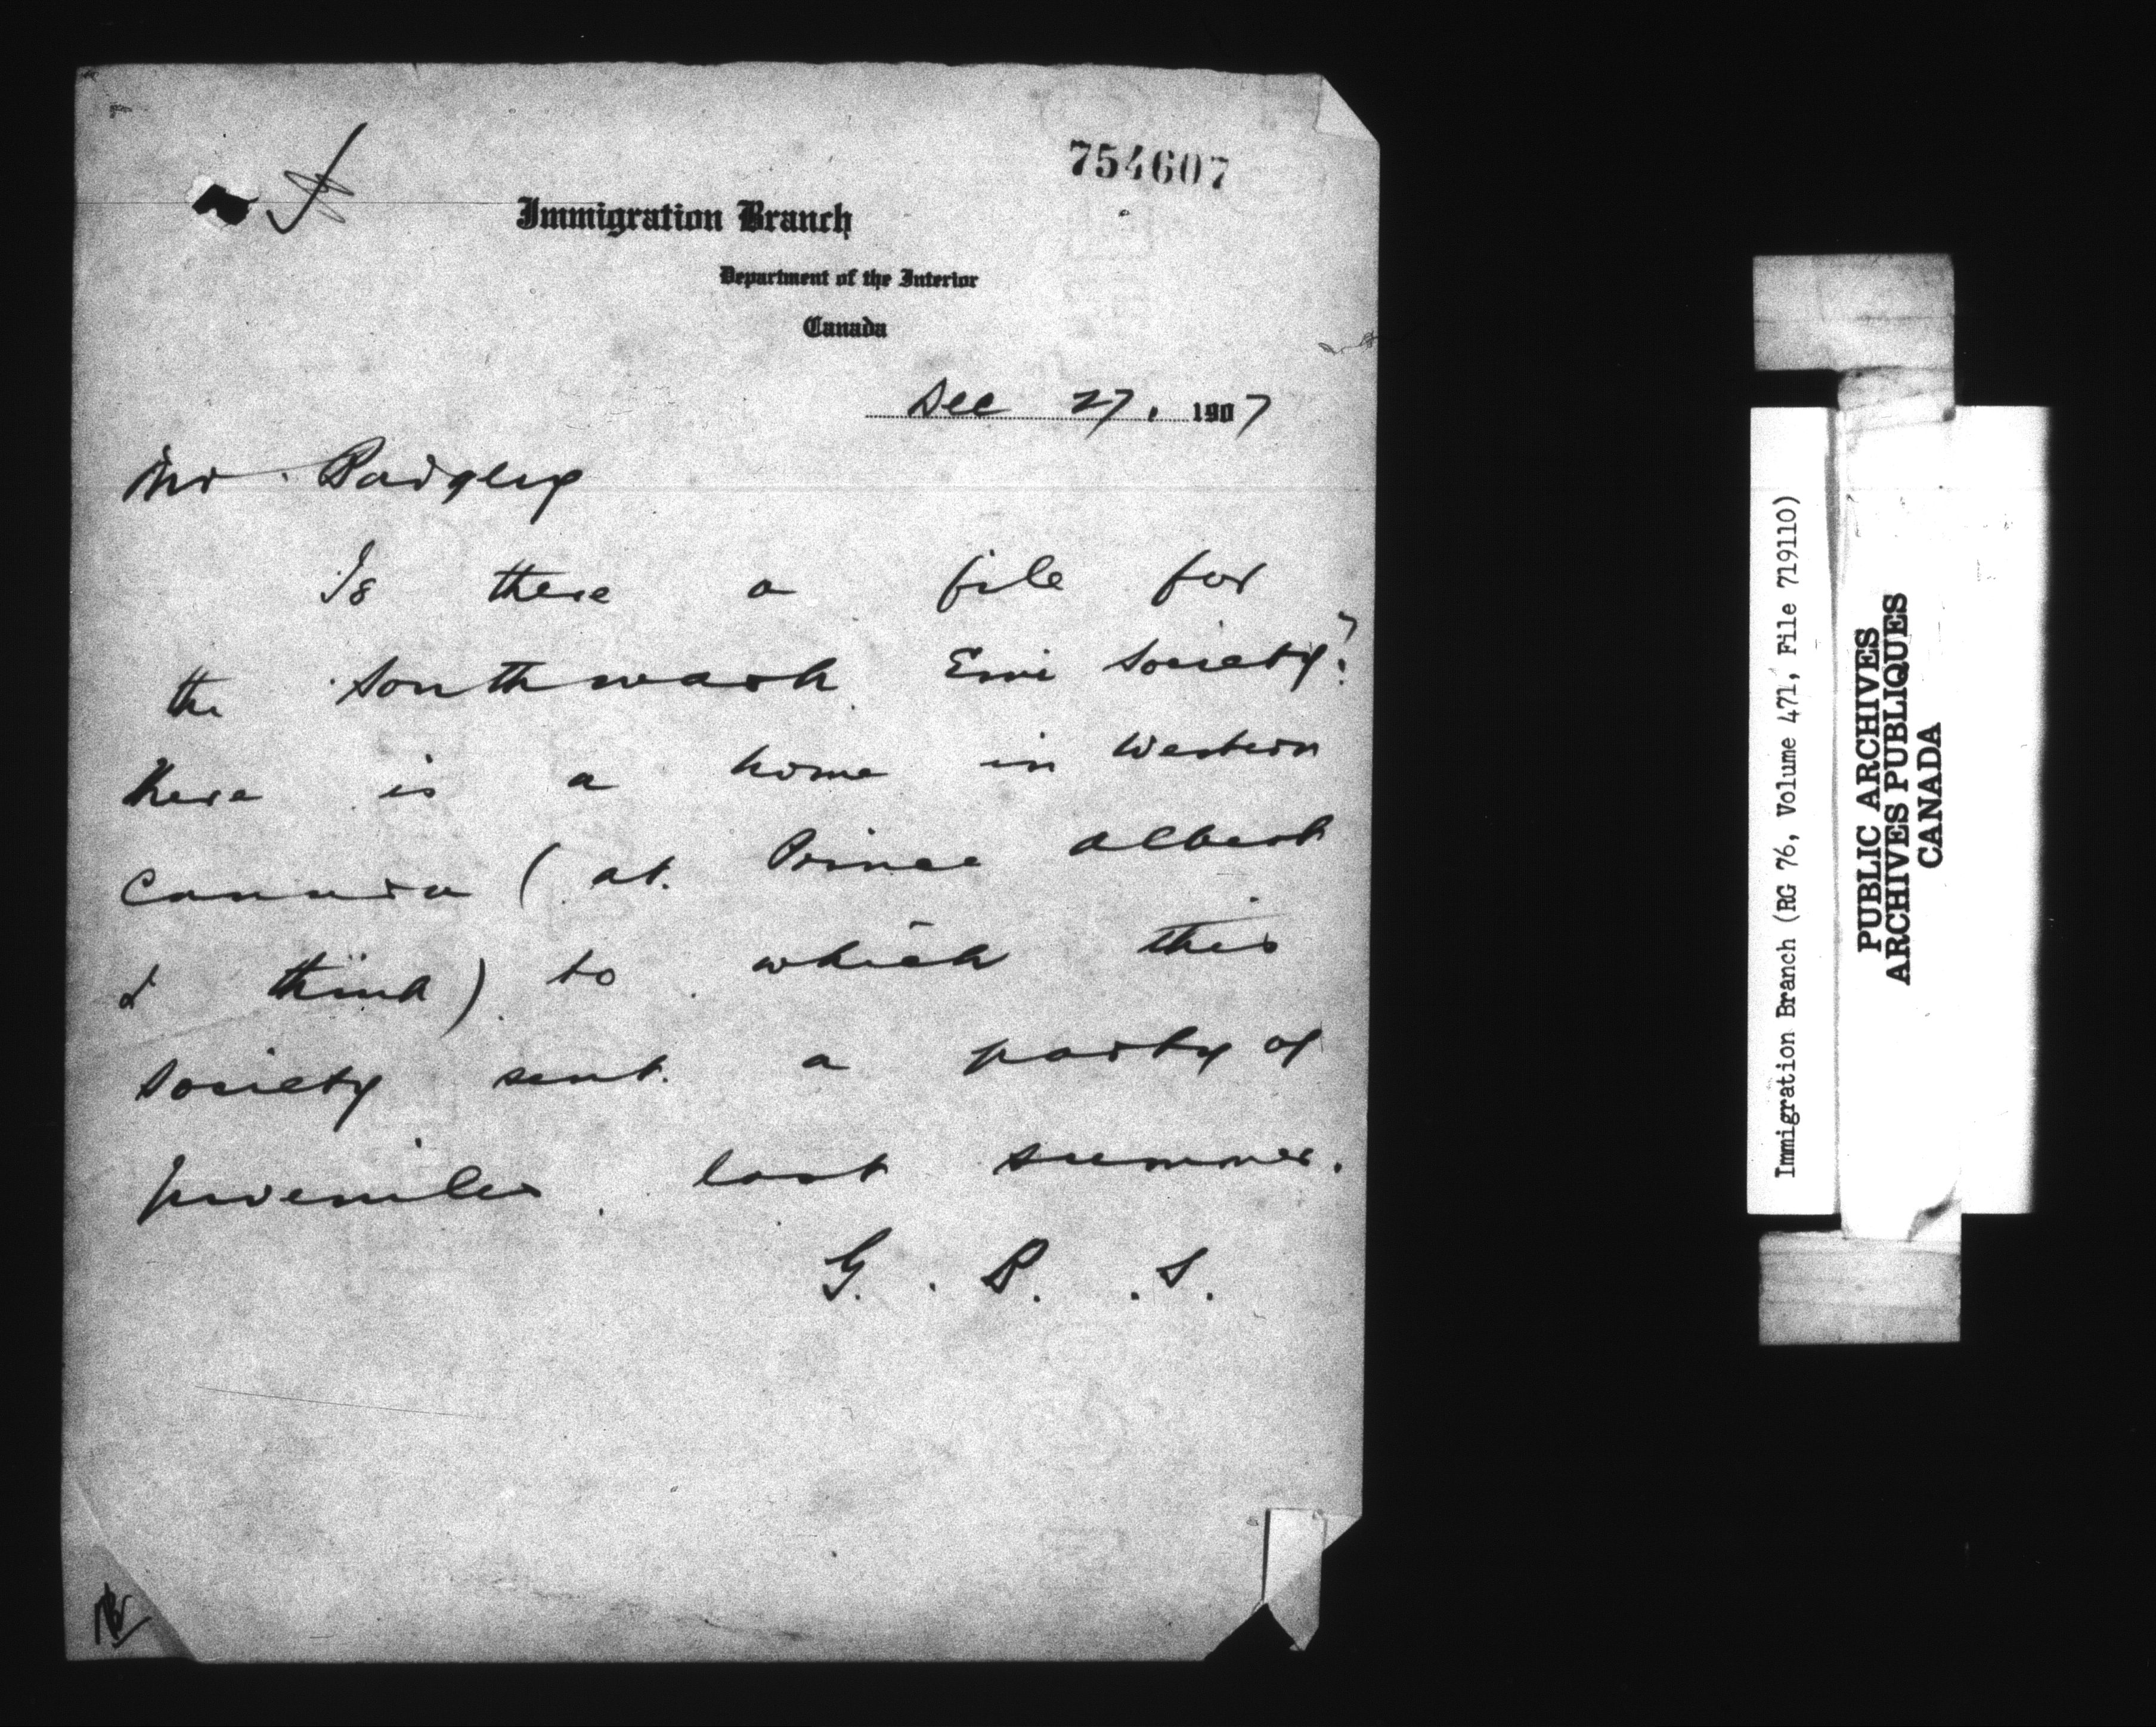 754607
Immigration Branch
Department of the Interior
Canada
Dec 27. 1907
Mr. Badgley
Is there a file for
the Southwark Emi Society?
there is a home in Western
Canada (at Prince Albert
I think) to which this
Society sent a party of
juveniles last summer.
G. B. S.
Immigration Branch (RG 76, Volume 471, File 719110)
PUBLIC ARCHIVES
ARCHIVES PUBLIQUES
CANADA